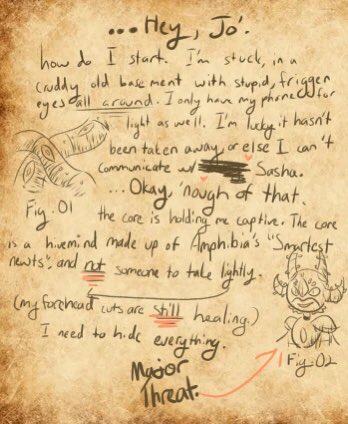 ...Hey, Jo'.
how do I start. I'm stuck, in a
cruddy old basement with stupid, friggen
eyes all around. I only have my phone for
light as well. I'm lucky it hasn't
been taken away or else I can't
communicate w/ Sasha.
...Okay, 'nough of that.
the core is holding me captive. The core
is a hivemind made up of Amphibia's "Smartest
newts", and not someone to take lightly.
(my forehead cuts are still healing.)
I need to hide everything.
Major
Threat.
Fig. 01
Fig. 02